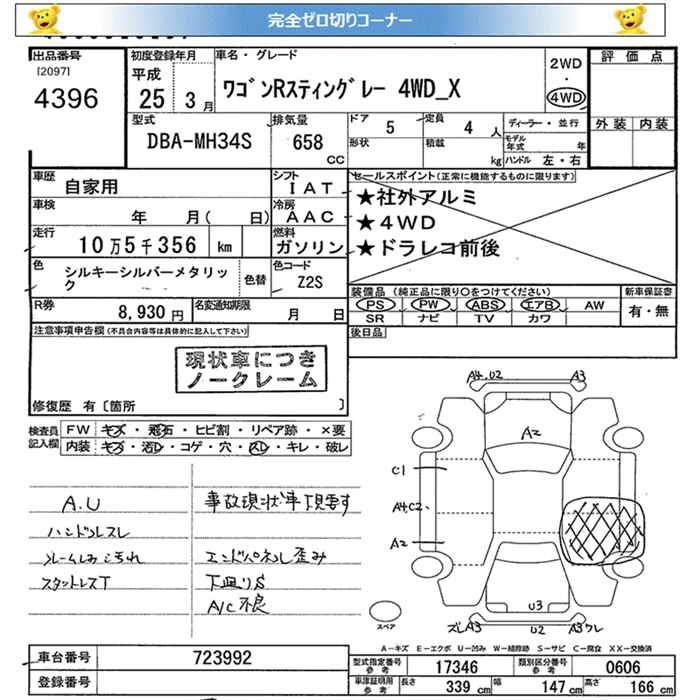 完全ゼロ切りコーナー
出品番号
[2097]
4396
初度登録年月
平成
25 3月
車名・グレード
ワゴンRスティングレー 4WD_X
2WD
・
4WD
評価点
外装 内装
型式
DBA-MH34S
排気量
658
CC
ドア
5
定員
4 人
形状
積載
kg
ディーラー・並行
モデル年式
年
ハンドル 左・右
車歴
自家用
シフト
IAT
車検
年 月( 日)
冷房
AAC
走行
10万5千356 km
燃料
ガソリン
色
シルキーシルバーメタリック
色替
色コード
Z2S
R券
8,930円
名変通知期限
月 日
セールスポイント(正常に機能するものに限ります)
★社外アルミ
★4WD
★ドラレコ前後
装備品 (純正品に限り○をつけてください)
PS PW ABS エアB AW
SR ナビ TV カワ
新車保証書
有・無
後日品
注意事項申告欄(不具合内容等は具体的に記入して下さい)
現状車につき
ノークレーム
修復歴 有〔箇所 〕
検査員
記入欄
FW キズ・飛石・ヒビ割・リペア跡・×要
内装 キズ・汚レ・コゲ・穴・スレ・キレ・破レ
A.U
ハンドルスレ
フレームしみ汚れ
スタットレスT
事故現状車下見要す
エンドパネル歪み
下廻りS
A/C不良
A4.U2
A3
A2
C1
A4C2
A2
U3
スペア
ズレA3
U2
A3ワレ
A－キズ E－エクボ U－凹み W－補修跡 S－サビ C－腐食 XX－交換済
車台番号
723992
登録番号
型式指定番号
参考
17346
類別区分番号
参考
0606
車庫証明用
参考
長さ
339 cm
幅
147 cm
高さ
166 cm